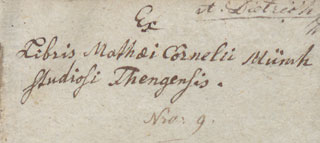 Ex
Libris Mathæi Cornelii Münch
studiosi Thengensis.
Nro: 9.